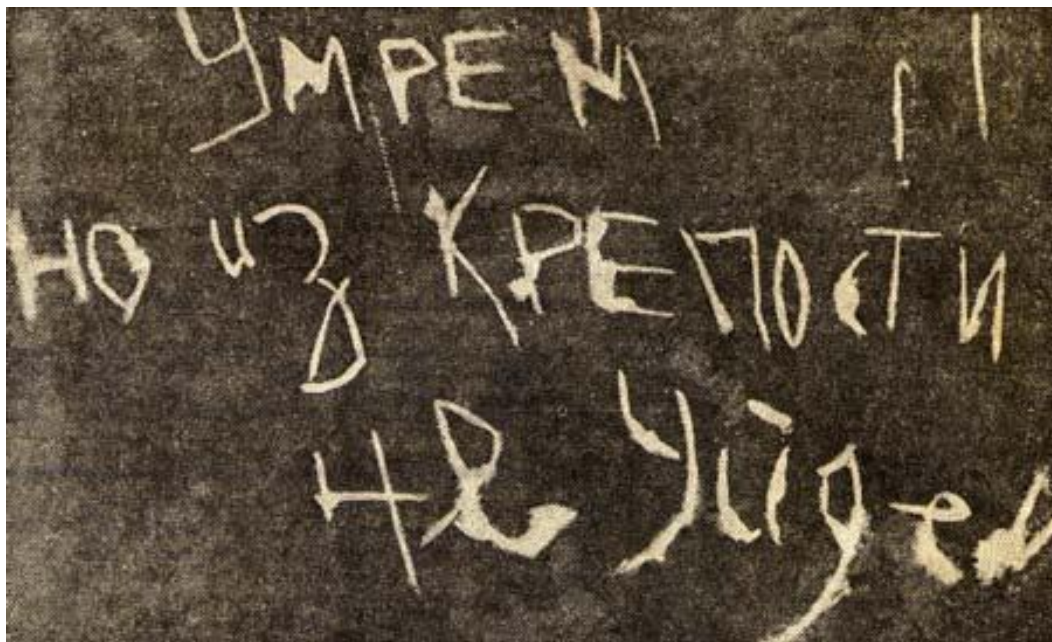 УМРЕМ
НО из КРЕПОСТИ
не уйдем